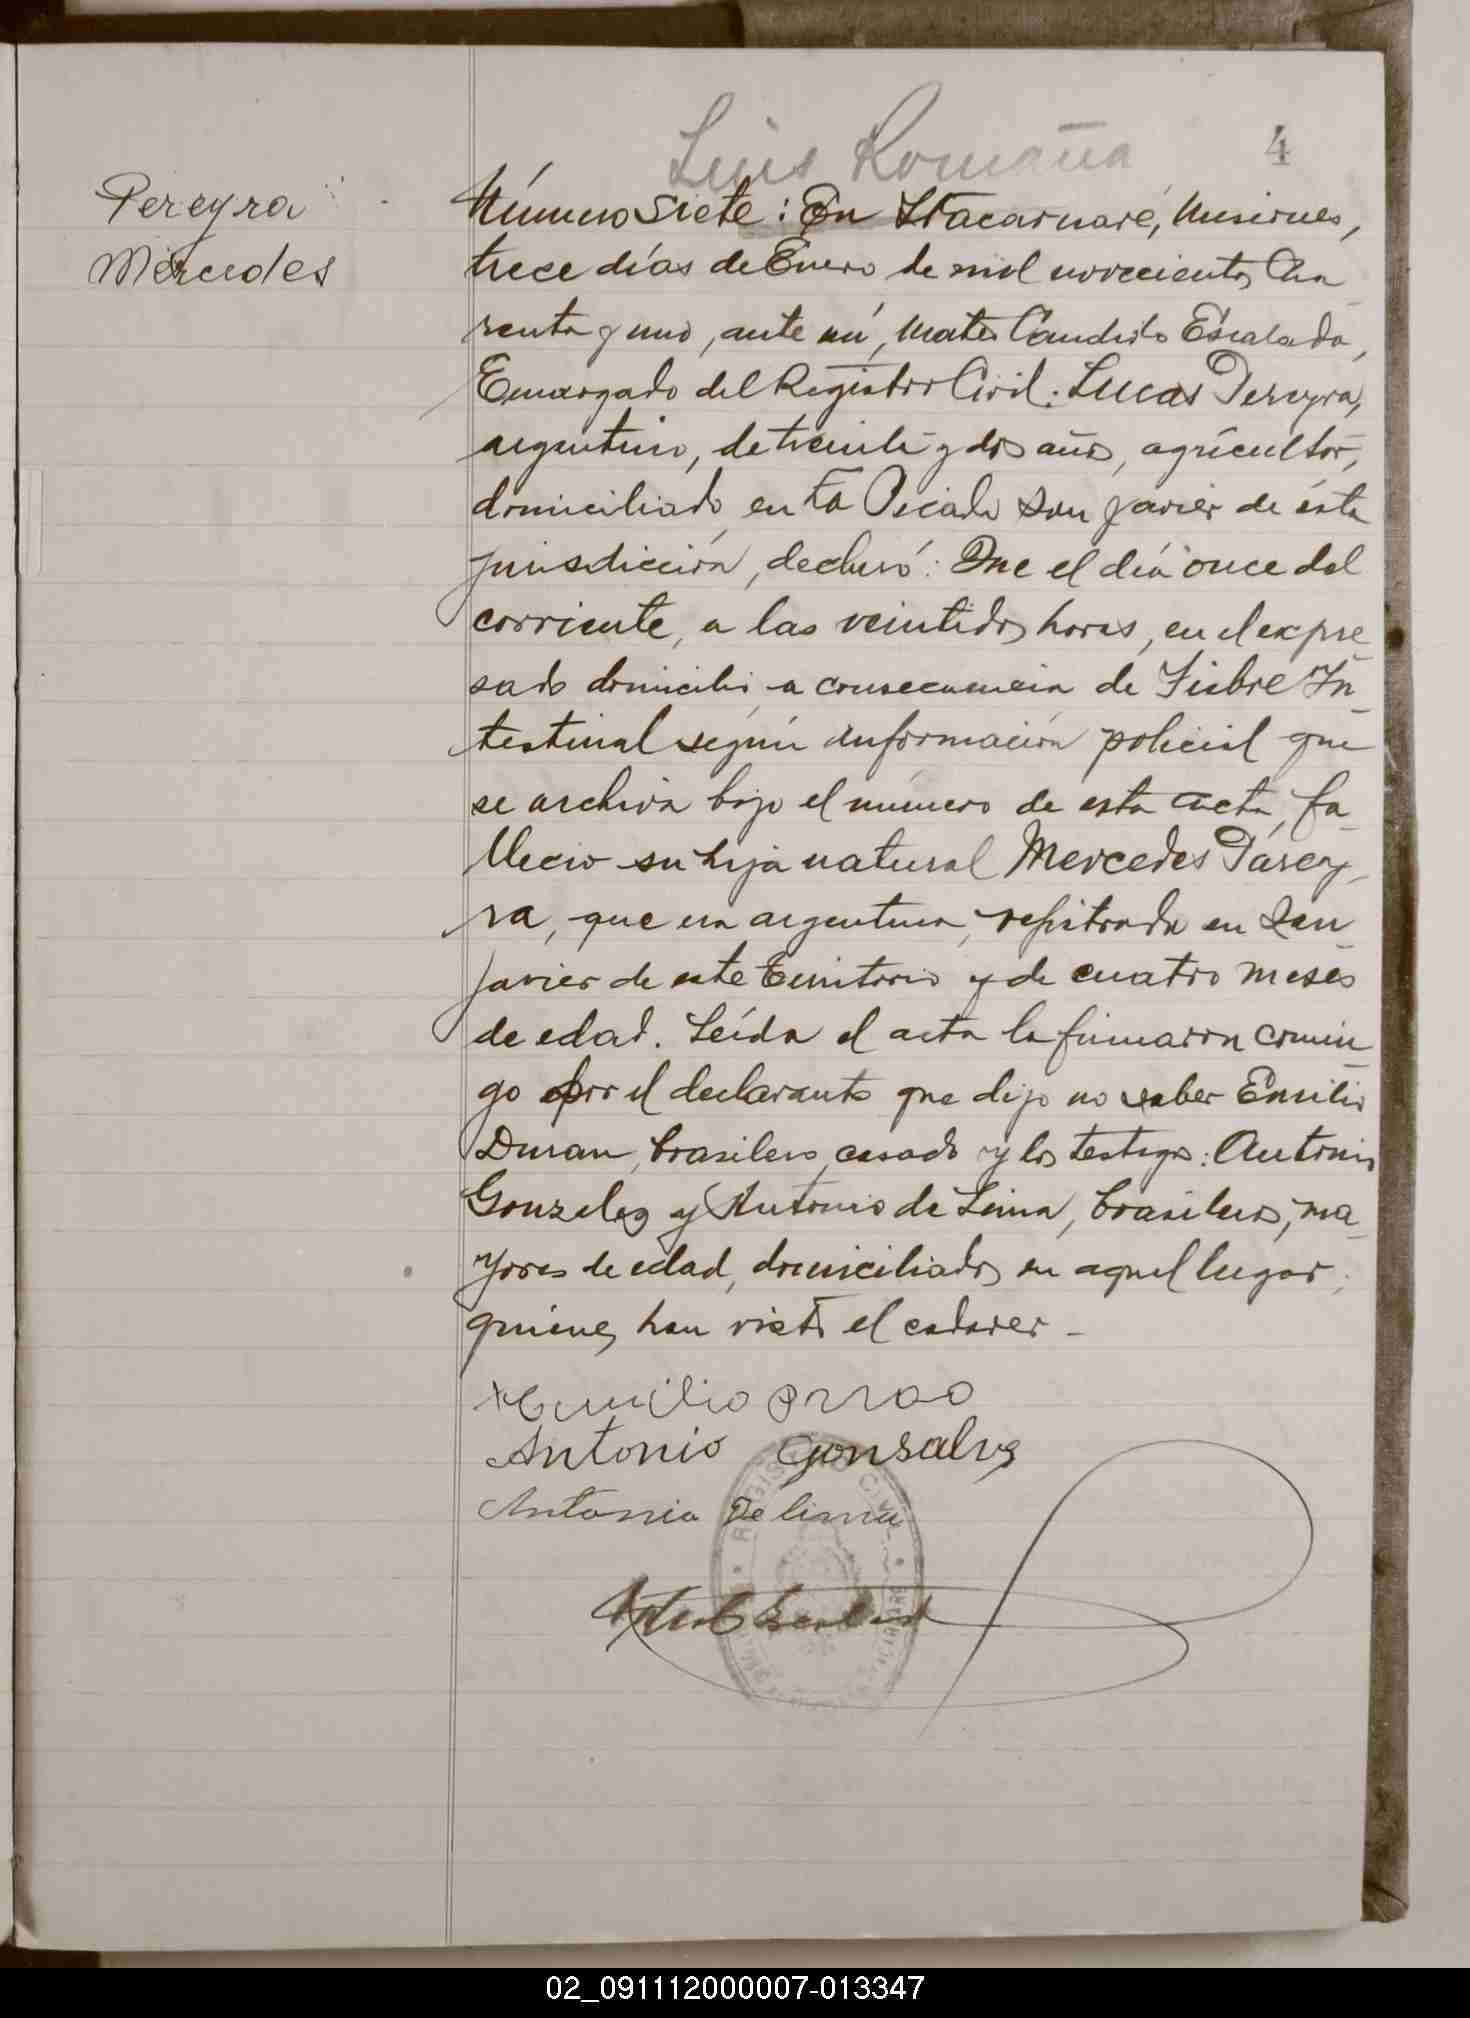 Luis Romaña
4
Pereyra
Mercedes
Número siete: En Itacaruaré, Misiones,
trece días de Enero de mil novecientos Cua
renta y uno, ante mí, Mateo Candido Escalada,
Encargado del Registro Civil: Lucas Pereyra,
argentino, de treinta y dos años, agricultor,
domiciliado en la Picada San Javier de ésta
jurisdicción, declaró: Que el día once del
corriente, a las veintidos horas, en el expre
sado domicilio a consecuencia de Fiebre In
testinal según información policial que
se archiva bajo el número de esta acta, fa
llecio su hija natural Mercedes Parey
ra, que era argentina, registrada en San
Javier de este territorio y de cuatro meses
de edad. Leída el acta la firmaron conmi
go por el declarante que dijo no saber Emilio
Duran, brasilero, casado y los testigos: Antonio
Gonzalez y Antonio de Lima, brasileros, ma
yores de edad, domiciliados en aquel lugar,
quienes han visto el cadaver -
Emilio
Antonio Gonsalvs
Antonio De lima
REGISTRO CIVIL
02_091112000007-013347